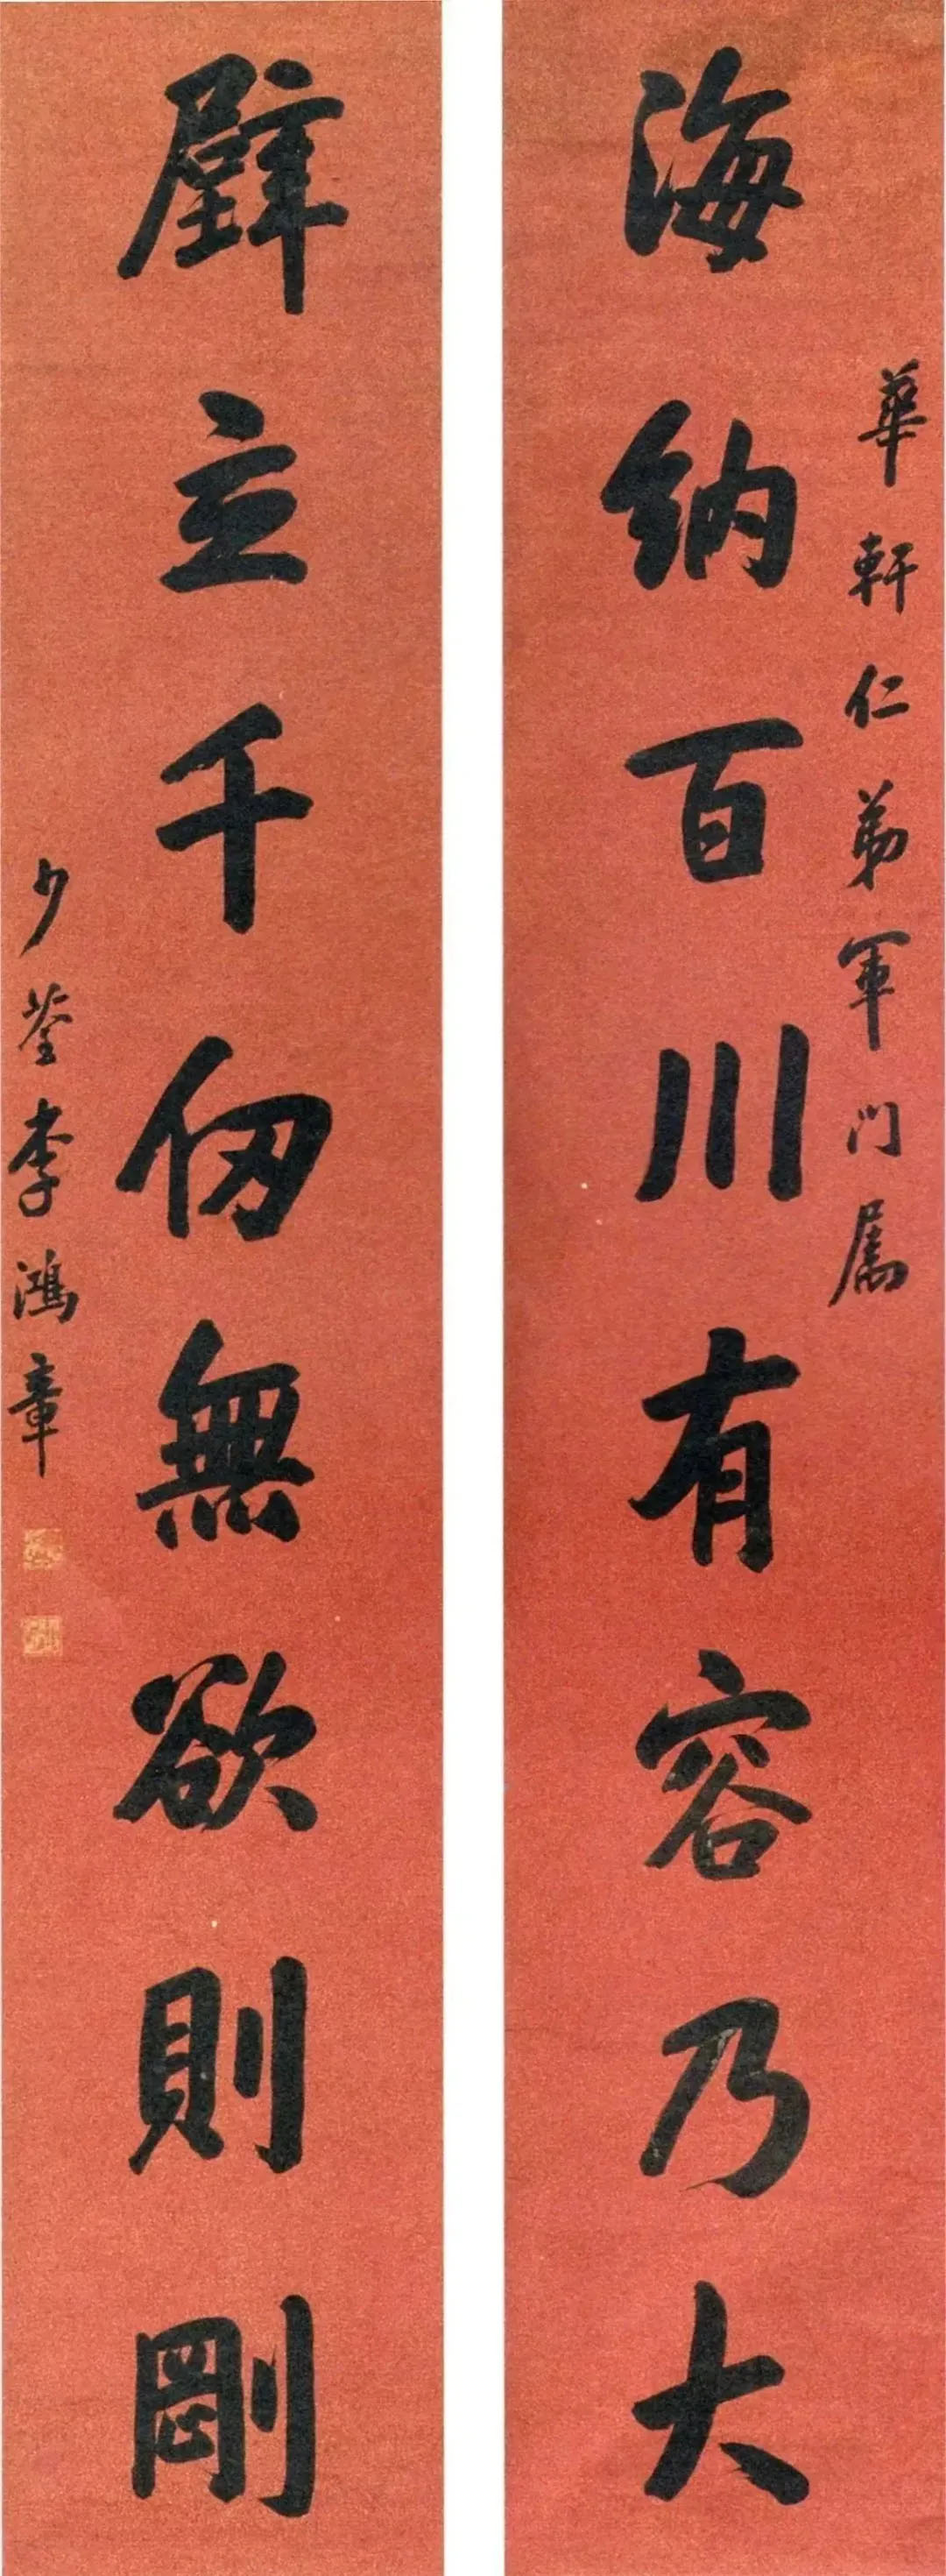 華軒仁弟軍門属
海納百川有容乃大
壁立千仞無欲則剛
少荃李鴻章